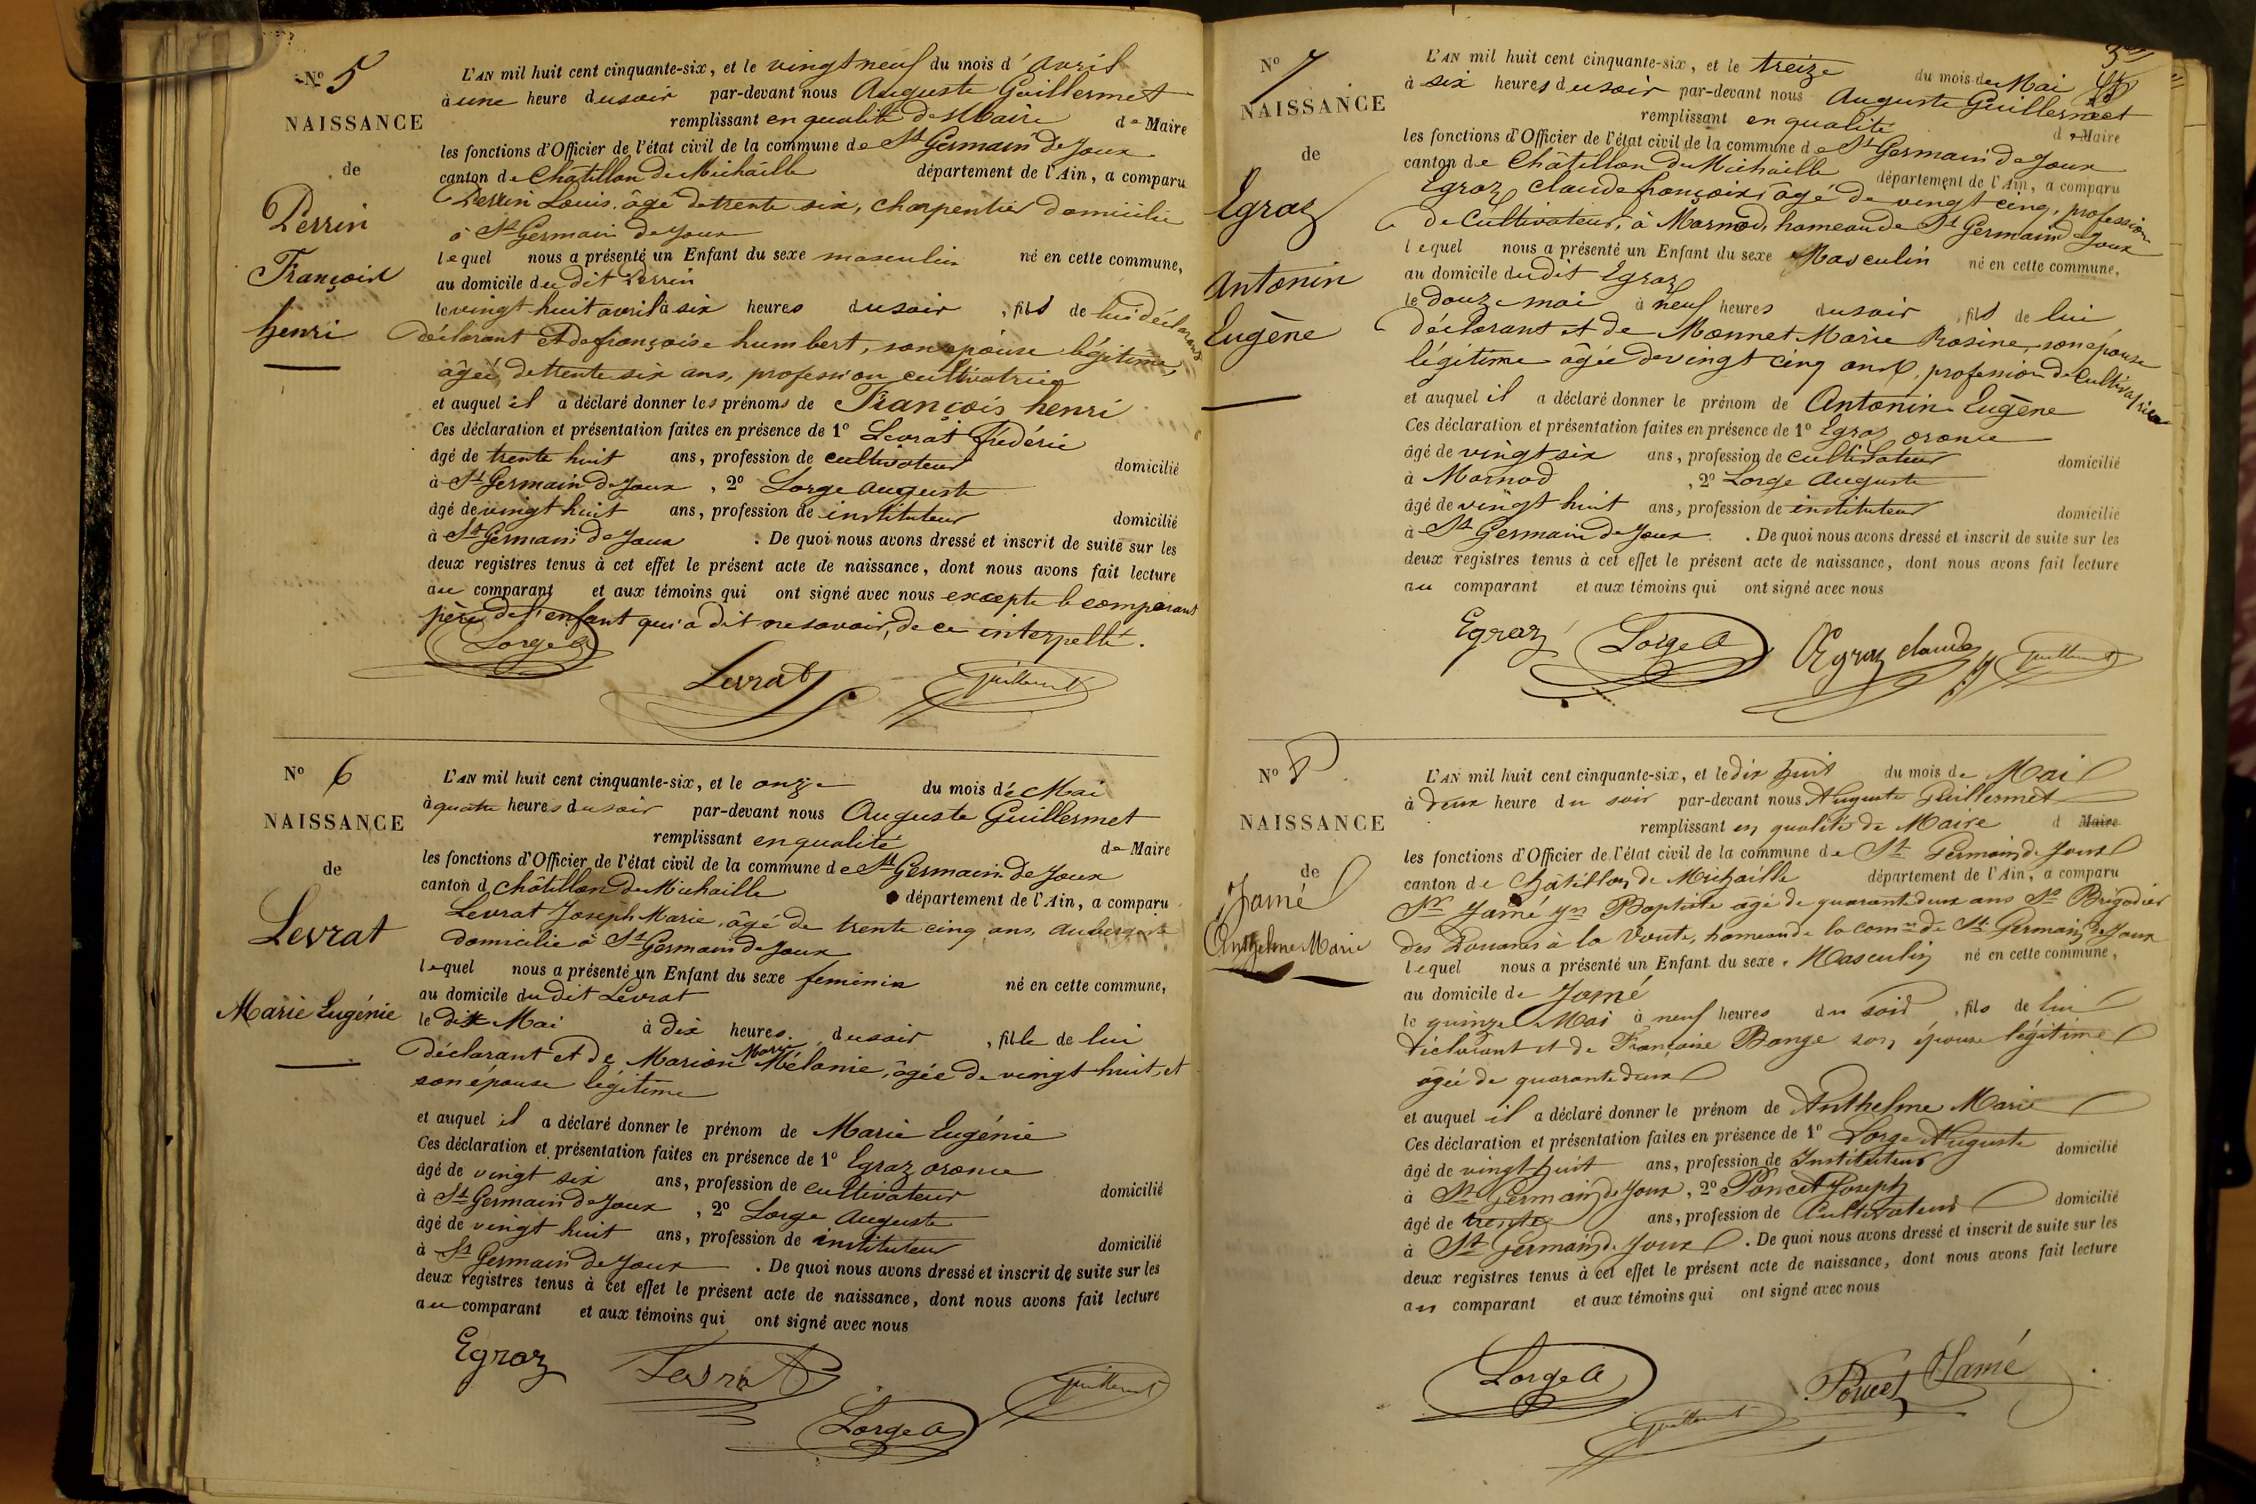 N° 5
NAISSANCE
de
Perrin
François
henri
L'AN mil huit cent cinquante-six, et le vingt neuf du mois d'avril
à une heure du soir par-devant nous Auguste Guillermet
remplissant en qualité de Maire de Maire
les fonctions d'Officier de l'état civil de la commune de St Germain de Joux
canton de Châtillon de Michaille département de l'Ain, a comparu
Perrin Louis, âgé de trente six, charpentier domicilié
à St Germain de Joux
lequel nous a présenté un Enfant du sexe masculin né en cette commune,
au domicile du dit Perrin
le vingt huit avril à six heures du soir, fils de lui déclarant
déclarant et de françoise humbert, son épouse légitime,
âgée de trente six ans, profession cultivatrice
et auquel il a déclaré donner les prénoms de François henri
Ces déclaration et présentation faites en présence de 1° Levrat frédéric
âgé de trente huit ans, profession de cultivateur domicilié
à St Germain de Joux, 2° Lorge auguste
âgé de vingt huit ans, profession de instituteur domicilié
à St Germain de Joux. De quoi nous avons dressé et inscrit de suite sur les
deux registres tenus à cet effet le présent acte de naissance, dont nous avons fait lecture
au comparant et aux témoins qui ont signé avec nous excepte le comparant
père de l'enfant qui a dit ne savoir, de ce interpellé.
Lorge A
Levrat
Guillermet
N° 6
NAISSANCE
de
Levrat
Marie Eugénie
L'AN mil huit cent cinquante-six, et le onze du mois de Mai
à quatre heures du soir par-devant nous Auguste Guillermet
remplissant en qualité de Maire
les fonctions d'Officier de l'état civil de la commune de St Germain de Joux
canton d Châtillon de Michaille département de l'Ain, a comparu
Levrat Joseph Marie, âgé de trente cinq ans, aubergiste
domicilié à St Germain de Joux
lequel nous a présenté un Enfant du sexe feminin né en cette commune,
au domicile du dit Levrat
le dix Mai à dix heures du soir, fille de lui
déclarant et de Marion Marie Mélanie, âgée de vingt huit, et
son épouse légitime
et auquel il a déclaré donner le prénom de Marie Eugénie
Ces déclaration et présentation faites en présence de 1° Egraz oronce
âgé de vingt six ans, profession de cultivateur domicilié
à St Germain de Joux, 2° Lorge Auguste
âgé de vingt huit ans, profession de instituteur domicilié
à St Germain de Joux. De quoi nous avons dressé et inscrit de suite sur les
deux registres tenus à cet effet le présent acte de naissance, dont nous avons fait lecture
au comparant et aux témoins qui ont signé avec nous
Egraz
Levrat
Lorge A
Guillermet
N° 7
NAISSANCE
de
Egraz
Antonin
Eugène
L'AN mil huit cent cinquante-six, et le treize du mois de Mai
à six heures du soir par-devant nous Auguste Guillermet
remplissant en qualité de Maire
les fonctions d'Officier de l'état civil de la commune de St Germain de Joux
canton de Châtillon de Michaille département de l'Ain, a comparu
Egraz claude françois, âgé de vingt cinq, profession
de Cultivateur, à Marnod, hameau de St Germain de Joux
lequel nous a présenté un Enfant du sexe Masculin né en cette commune,
au domicile du dit Egraz
le douze mai à neuf heures du soir, fils de lui
déclarant et de Monnet Marie Rosine, son épouse
légitime âgée de vingt cinq ans, profession de cultivatrice
et auquel il a déclaré donner le prénom de Antonin Eugène
Ces déclaration et présentation faites en présence de 1° Egraz oronce
âgé de vingt six ans, profession de cultivateur domicilié
à Marnod, 2° Lorge Auguste
âgé de vingt huit ans, profession de instituteur domicilié
à St Germain de Joux. De quoi nous avons dressé et inscrit de suite sur les
deux registres tenus à cet effet le présent acte de naissance, dont nous avons fait lecture
au comparant et aux témoins qui ont signé avec nous
Egraz
Lorge A
Egraz claude
Guillermet
N° 8
NAISSANCE
de
Jamé
Anthelme Marie
L'AN mil huit cent cinquante-six, et le dix huit du mois de Mai
à deux heure du soir par-devant nous Auguste Guillermet
remplissant en qualité de Maire d Maire
les fonctions d'Officier de l'état civil de la commune de St Germain de Joux
canton de Châtillon de Michaille département de l'Ain, a comparu
Sr Jamé Jn Baptiste agé de quarante deux ans Brigadier
des Douanes à la Voute, hameau de la comne de St Germain de Joux
lequel nous a présenté un Enfant du sexe Masculin né en cette commune,
au domicile de Jamé
le quinze Mai à neuf heures du soir, fils de lui
déclarant et de Françoise Bange son épouse légitime
âgée de quarante deux
et auquel il a déclaré donner le prénom de Anthelme Marie
Ces déclaration et présentation faites en présence de 1° Lorge Auguste
âgé de vingt huit ans, profession de Instituteur domicilié
à St Germain de Joux, 2° Poncet Joseph
âgé de trente ans, profession de Cultivateur domicilié
à St Germain de Joux. De quoi nous avons dressé et inscrit de suite sur les
deux registres tenus à cet effet le présent acte de naissance, dont nous avons fait lecture
au comparant et aux témoins qui ont signé avec nous
Lorge A
Guillermet
Poncet
Jamé